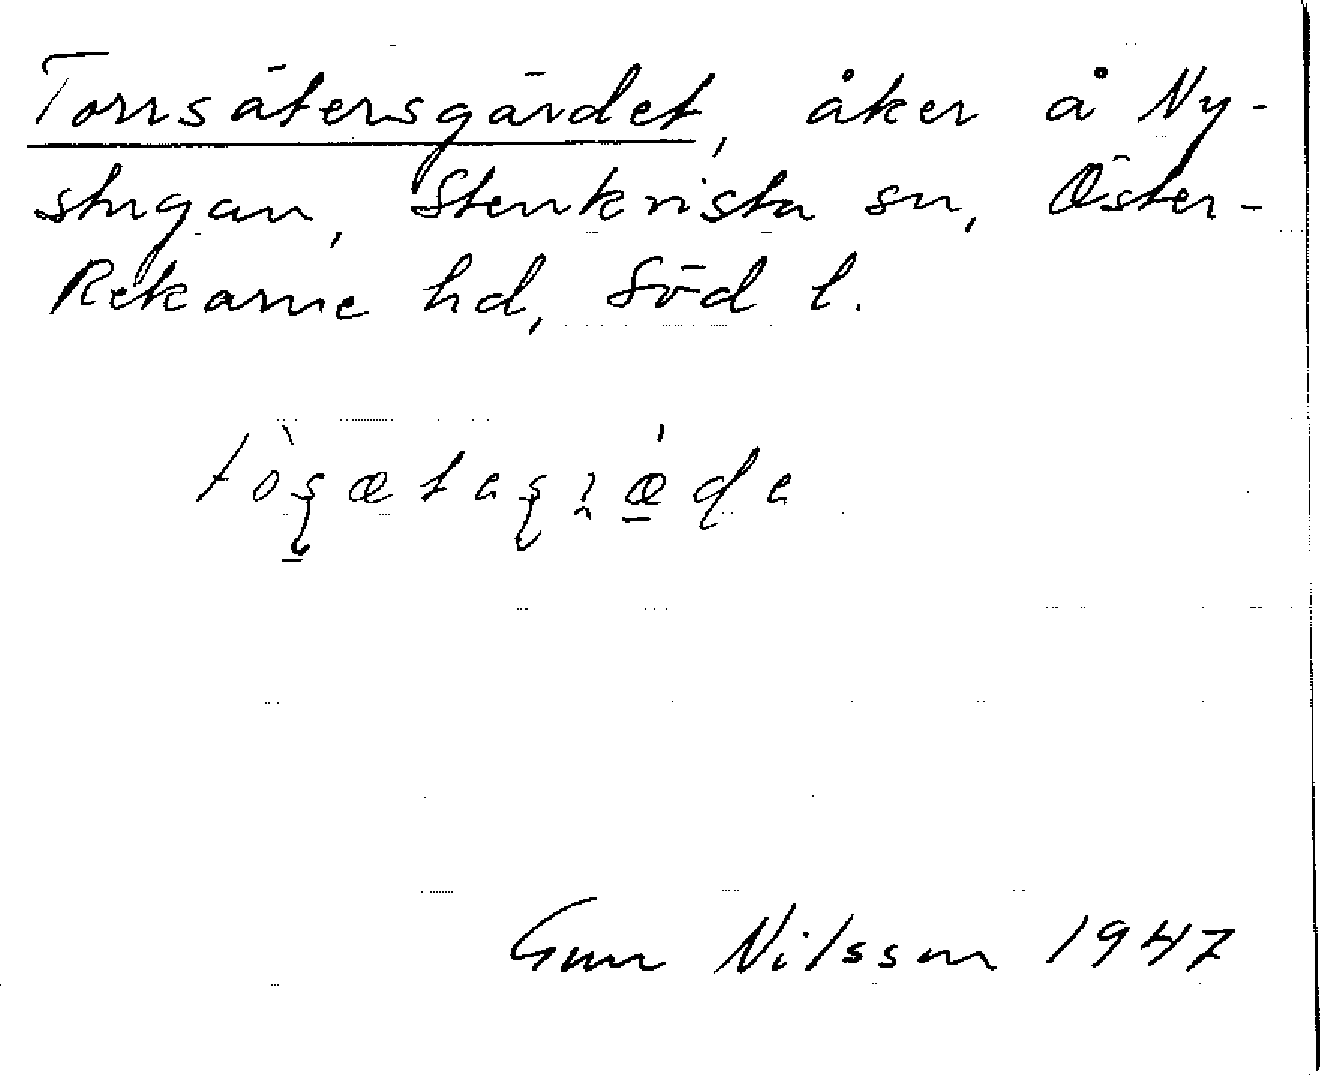 Torrsätersgärdet, åker å Ny-
stugan, Stenkvista sn, Öster-
Rekarne hd, Söd l.
Gun Nilsson 1947